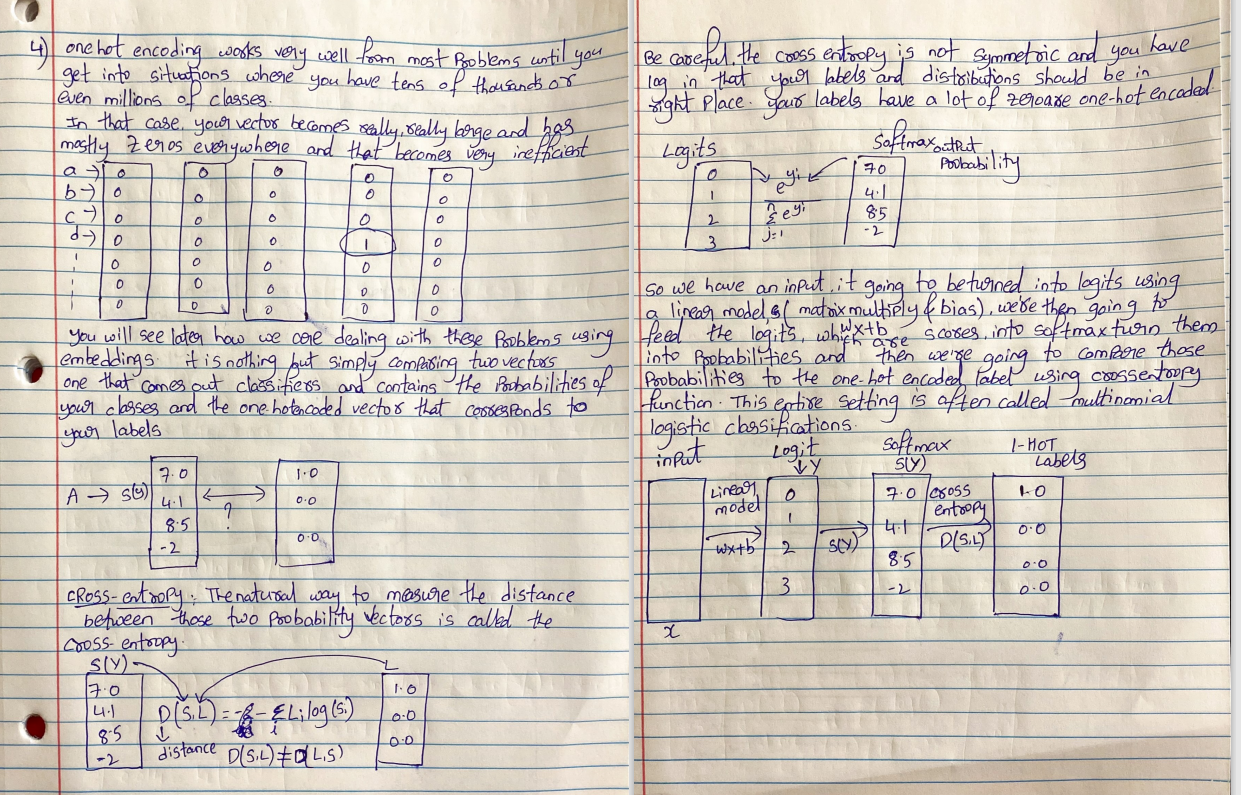 4) one hot encoding works very well from most Problems until you
get into situations where you have tens of thousands or
even millions of classes.
In that case, your vector becomes really, really large and has
mostly zeros everywhere and that becomes very inefficient
a → 0 0 0 0 0
b → 0 0 0 0 0
c → 0 0 0 0 0
d → 0 0 0 1 0
0 0 0 0 0
0 0 0 0 0
0 0 0 0 0
You will see later how we are dealing with these Problems using
embeddings. it is nothing but simply comparing two vectors
one that comes out classifiers and contains the Probabilities of
your classes and the one hotencoded vector that corresponds to
your labels
A → S(y) 7.0 1.0
4.1 ? 0.0
8.5
-2 0.0
CRoss-entropy: The natural way to measure the distance
between those two Probability vectors is called the
Cross-entropy.
S(Y) L
7.0 1.0
4.1 D(S,L) = - Σ Li log(Si) 0.0
i
8.5 0.0
-2 distance D(S,L) ≠ D(L,S)
Be careful, the cross entropy is not symmetric and you have
log in that your labels and distributions should be in
right Place. your labels have a lot of zeroare one-hot encoded.
Logits Softmax output
Probability
0 e^yi 7.0
1 4.1
2 n Σ e^yi 8.5
3 j=1 -2
So we have an input, it going to beturned into logits using
a linear model, (matrix multiply & bias), we're then going to
wx+b
feed the logits, which are scores, into softmax turn them
into Probabilities and then we're going to compare those
Probabilities to the one-hot encoded label using crossentropy
function. This entire setting is often called multinomial
logistic classifications.
input Logit Softmax 1-HOT
Y S(Y) Labels
Linear 0 7.0 cross 1.0
model 1 entropy
wx+b 2 S(Y) 4.1 D(S,L) 0.0
8.5 0.0
3 -2 0.0
x